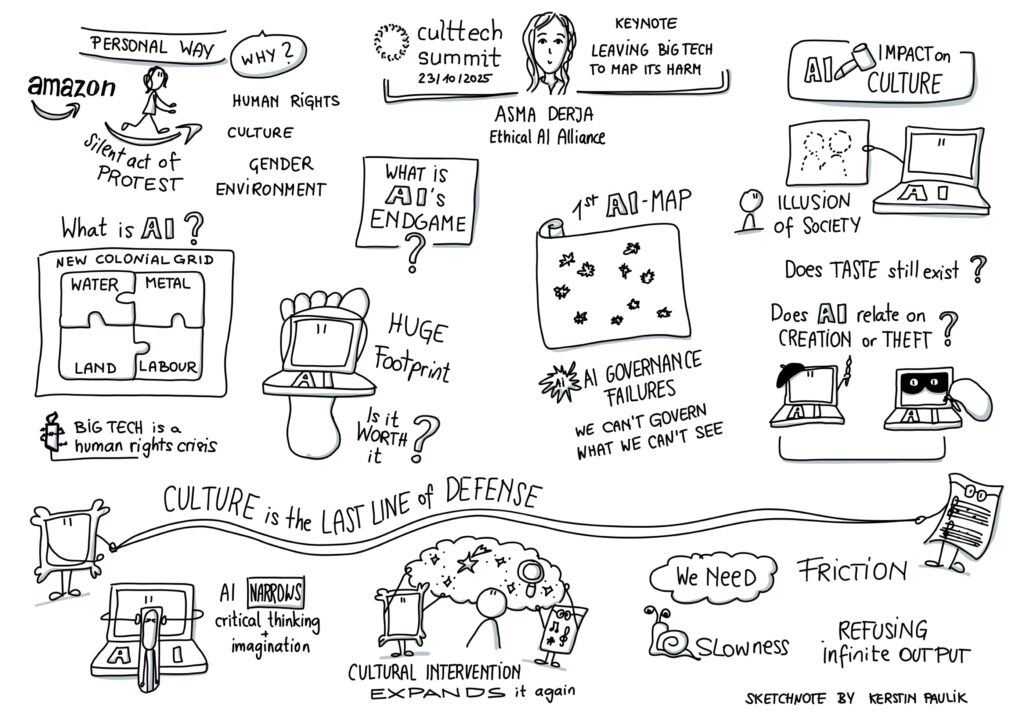 PERSONAL WAY
WHY?
amazon
Silent act of
PROTEST
HUMAN RIGHTS
CULTURE
GENDER
ENVIRONMENT
culttech
summit
23/10/2025
KEYNOTE
LEAVING BIG TECH
TO MAP ITS HARM
ASMA DERJA
Ethical AI Alliance
AI IMPACT on
CULTURE
AI
ILLUSION
of SOCIETY
Does TASTE still exist?
Does AI relate on
CREATION or THEFT?
AI
AI
What is AI?
NEW COLONIAL GRID
WATER
METAL
LAND
LABOUR
BIG TECH is a
human rights crisis
WHAT IS
AI's
ENDGAME
?
AI
HUGE
Footprint
Is it
WORTH
it?
1st AI-MAP
Ai
AI GOVERNANCE
FAILURES
WE CAN'T GOVERN
WHAT WE CAN'T SEE
CULTURE is the LAST LINE of DEFENSE
AI
AI NARROWS
critical thinking
+
imagination
CULTURAL INTERVENTION
EXPANDS it again
We NEED
FRICTION
SLOWNESS
REFUSING
infinite OUTPUT
SKETCHNOTE BY KERSTIN PAULIK